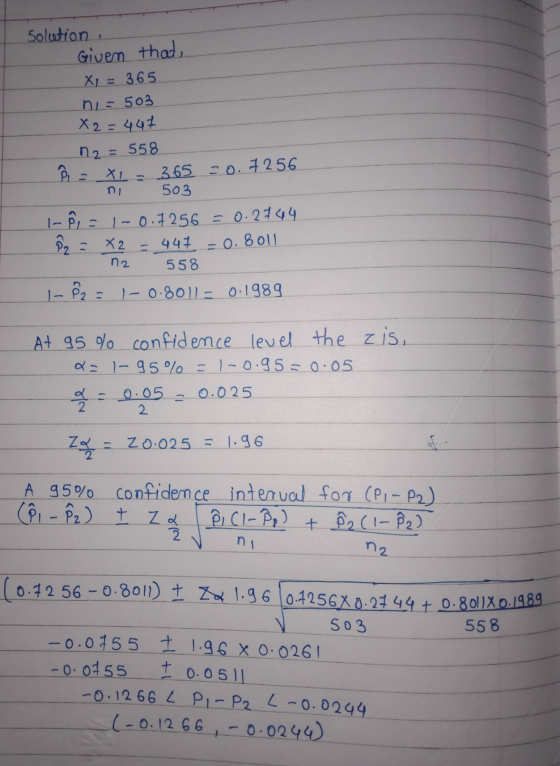 Solution,
Given thad,
x1 = 365
n1 = 503
x2 = 447
n2 = 558
p̂1 = x1/n1 = 365/503 = 0.7256
1 - p̂1 = 1 - 0.7256 = 0.2744
p̂2 = x2/n2 = 447/558 = 0.8011
1 - p̂2 = 1 - 0.8011 = 0.1989
At 95 % confidence level the z is,
α = 1 - 95% = 1 - 0.95 = 0.05
α/2 = 0.05/2 = 0.025
Zα/2 = Z0.025 = 1.96
A 95% confidence interval for (P1 - P2)
(p̂1 - p̂2) ± Zα/2 √(p̂1(1-p̂1)/n1 + p̂2(1-p̂2)/n2)
(0.7256 - 0.8011) ± 1.96 √(0.7256 X 0.2744/503 + 0.8011 X 0.1989/558)
-0.0755 ± 1.96 × 0.0261
-0.0755 ± 0.0511
-0.1266 < P1 - P2 < -0.0244
(-0.1266, -0.0244)